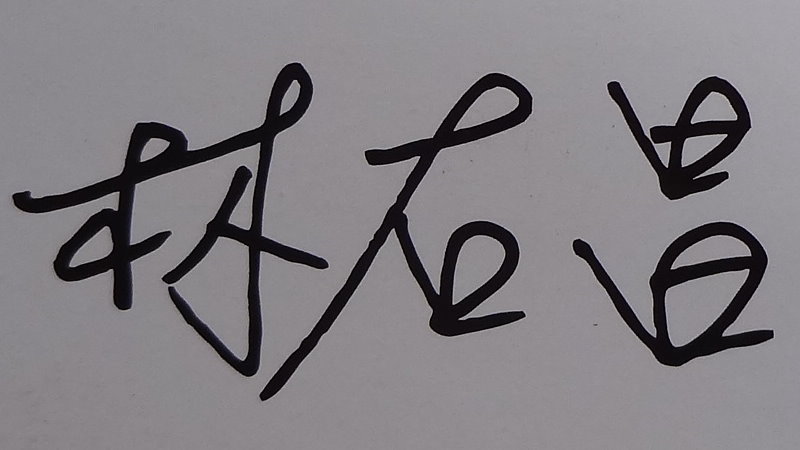 林石昌